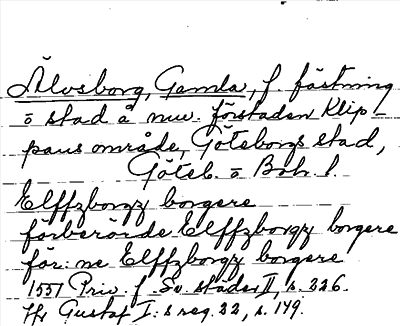 Älvsborg, Gamla, f. fästning
o stad å nuv. förstaden Klip-
pans område, Göteborgs stad,
Göteb. o Boh. l.
Elffzborgz borgere
förberörde Elffzborgz borgere
för:ne Elffzborgz borgere
1551 Priv. f. Sv. städer II, s. 226.
Gustaf I:s reg. 22, s. 149.